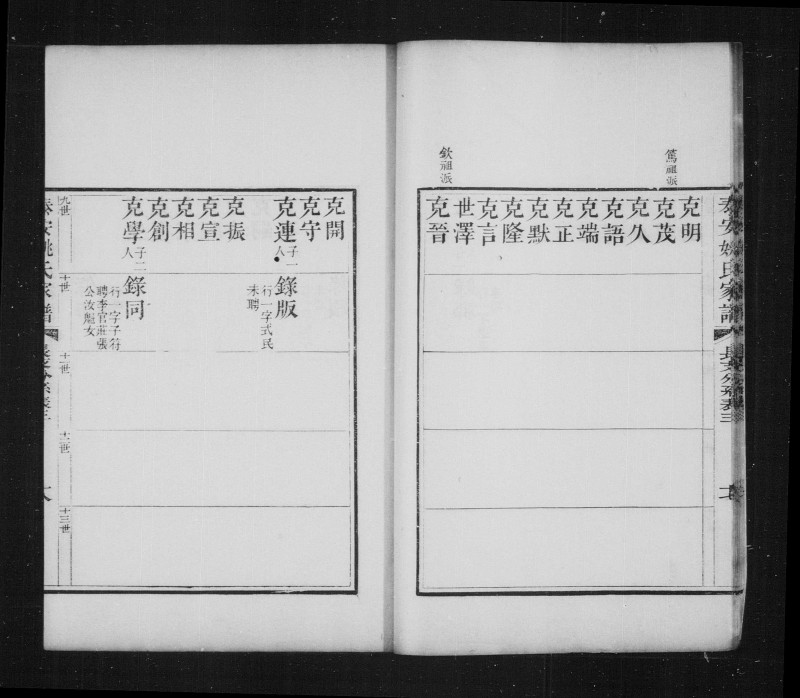 篤祖派
欽祖派
克明
克茂
克久
克語
克端
克正
克默
克隆
克言
世澤
克晉
克開
克守
克連
子一人
錄版
行一字式民
未聘
克振
克宣
克相
克創
克學
子二人
錄同
行一字子符
聘李官莊張
公汝
女
九世
十世
十一世
十二世
十三世
泰安姚氏家譜
長支分系表三